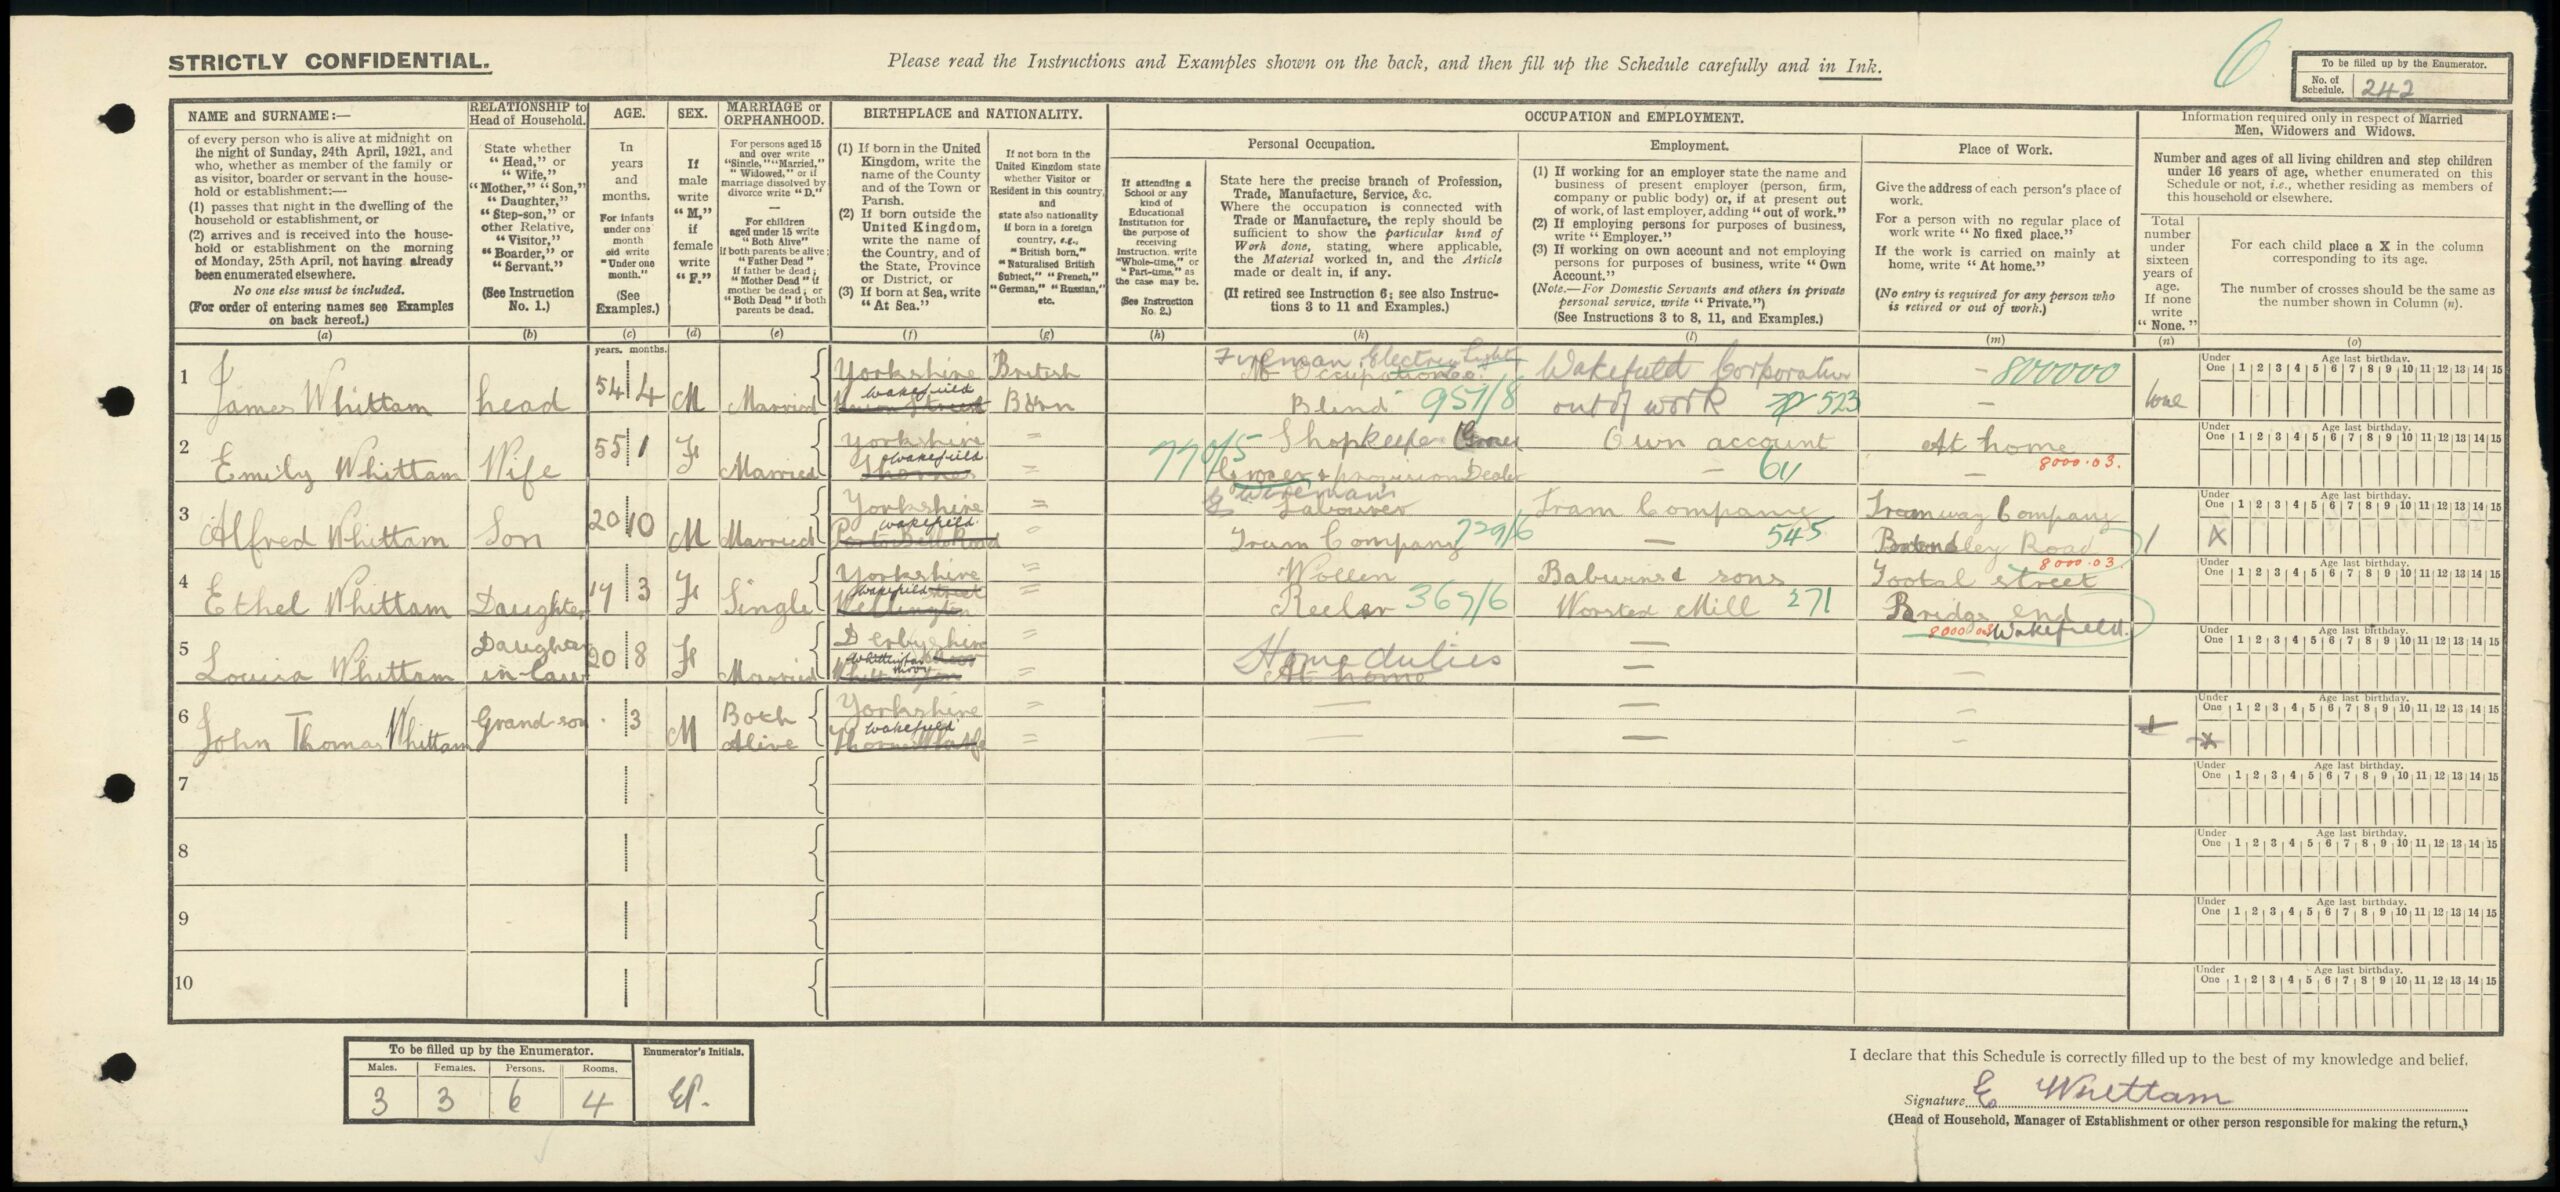 STRICTLY CONFIDENTIAL.
Please read the Instructions and Examples shown on the back, and then fill up the Schedule carefully and in Ink.
6
To be filled up by the Enumerator.
No. of Schedule. 242
NAME and SURNAME:—
of every person who is alive at midnight on
the night of Sunday, 24th April, 1921, and
who, whether as member of the family or
as visitor, boarder or servant in the house-
hold or establishment:—
(1) passes that night in the dwelling of the
household or establishment, or
(2) arrives and is received into the house-
hold or establishment on the morning
of Monday, 25th April, not having already
been enumerated elsewhere.
No one else must be included.
(For order of entering names see Examples
on back hereof.)
(a)
RELATIONSHIP to
Head of Household.
State whether
"Head," or
"Wife,"
"Mother," "Son,"
"Daughter,"
"Step-son," or
other Relative,
"Visitor,"
"Boarder," or
"Servant."
(See Instruction
No. 1.)
(b)
AGE.
In
years
and
months.
For infants
under one
month
old write
"Under one
month."
(See
Examples.)
(c)
SEX.
If
male
write
"M,"
if
female
write
"F."
(d)
MARRIAGE or
ORPHANHOOD.
For persons aged 15
and over write
"Single," "Married,"
"Widowed," or if
marriage dissolved by
divorce write "D."
—
For children
aged under 15 write
"Both Alive"
if both parents be alive;
"Father Dead"
if father be dead;
"Mother Dead" if
mother be dead; or
"Both Dead" if both
parents be dead.
(e)
BIRTHPLACE and NATIONALITY.
(1) If born in the United
Kingdom, write the
name of the County
and of the Town or
Parish.
(2) If born outside the
United Kingdom,
write the name of
the Country, and of
the State, Province
or District, or
(3) If born at Sea, write
"At Sea."
(f)
If not born in the
United Kingdom state
whether Visitor or
Resident in this country,
and
state also nationality
if born in a foreign
country, e.g.,
"British born,"
"Naturalised British
Subject," "French,"
"German," "Russian,"
etc.
(g)
OCCUPATION and EMPLOYMENT.
If attending a
School or any
kind of
Educational
Institution for
the purpose of
receiving
Instruction, write
"Whole-time," or
"Part-time," as
the case may be.
(See Instruction
No. 2.)
(h)
Personal Occupation.
State here the precise branch of Profession,
Trade, Manufacture, Service, &c.
Where the occupation is connected with
Trade or Manufacture, the reply should be
sufficient to show the particular kind of
Work done, stating, where applicable,
the Material worked in, and the Article
made or dealt in, if any.
(If retired see Instruction 6; see also Instruc-
tions 3 to 11 and Examples.)
(k)
Employment.
(1) If working for an employer state the name and
business of present employer (person, firm,
company or public body) or, if at present out
of work, of last employer, adding "out of work."
(2) If employing persons for purposes of business,
write "Employer."
(3) If working on own account and not employing
persons for purposes of business, write "Own
Account."
(Note.—For Domestic Servants and others in private
personal service, write "Private.")
(See Instructions 3 to 8, 11, and Examples.)
(l)
Place of Work.
Give the address of each person's place of
work.
For a person with no regular place of
work write "No fixed place."
If the work is carried on mainly at
home, write "At home."
(No entry is required for any person who
is retired or out of work.)
(m)
Information required only in respect of Married
Men, Widowers and Widows.
Number and ages of all living children and step children
under 16 years of age, whether enumerated on this
Schedule or not, i.e., whether residing as members of
this household or elsewhere.
Total
number
under
sixteen
years of
age.
If none
write
"None."
(n)
For each child place a X in the column
corresponding to its age.
The number of crosses should be the same as
the number shown in Column (n).
(o)
years. months.
1 James Whittam head 54 4 M Married Yorkshire Wakefield British Born
Fireman Electric Light
No Occupation
Blind 951/8 Wakefield Corporation out of work 523 — 800000
2 Emily Whittam Wife 55 1 F Married Yorkshire Wakefield
770/5 Shopkeeper
Grocer & provision Dealer Own account — 611 At home 8000.03.
3 Alfred Whittam Son 20 10 M Married Yorkshire Wakefield
Wireman's
Labourer
Tram Company 729/6 Tram Company — 545 Tramway Company Road 8000.03. 1 X
4 Ethel Whittam Daughter 17 3 F Single Yorkshire Wakefield
Wollen
Reeler 367/6 sons Worsted Mill 271 Tootal street Bridge end Wakefield.
5 Louisa Whittam Daughter in-law 20 8 F Married Derbyshire
Home duties
At home — —
6 John Thomas Whittam Grandson 3 M Both Alive Yorkshire Wakefield
7
8
9
10
Under One 1 2 3 4 5 6 7 8 9 10 11 12 13 14 15
Age last birthday.
To be filled up by the Enumerator.
Males. Females. Persons. Rooms.
3 3 6 4
Enumerator's Initials.
EP.
I declare that this Schedule is correctly filled up to the best of my knowledge and belief.
Signature E Whittam
(Head of Household, Manager of Establishment or other person responsible for making the return.)